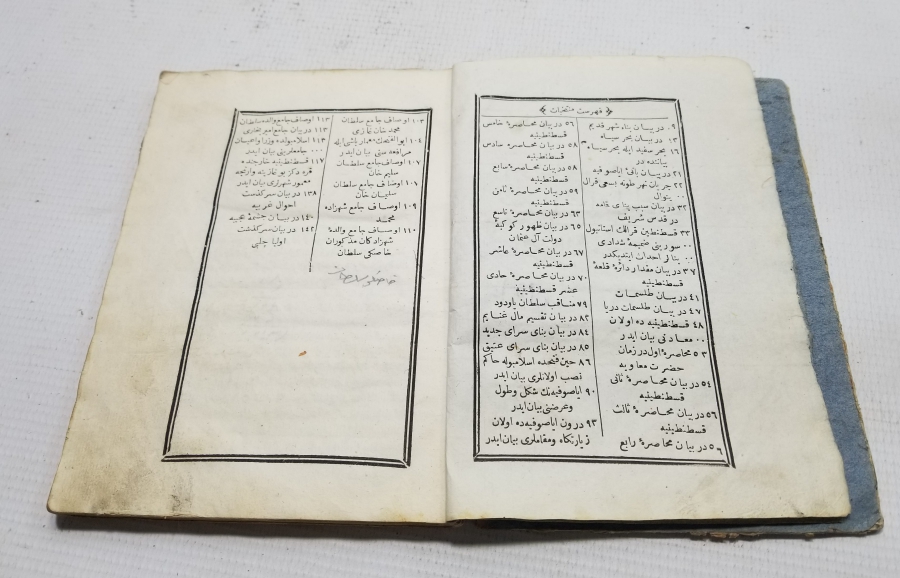 فهرست منتخبات
٩ در بیان بناء شهر قدیم
١٣ در بیان بحر سیاه
١٦ بحر سفید ایله بحر سیاه
بیاننده در
در بیان بانئ ایاصوفیه
٢٢ جریان نهر طونه بسعی قرال
٠٠ ینوال
٣٢ در بیان سبب بنای قلعه
در قدس شریف
٣٣ قسطنطین قرالك استانبول
٠٠ سورینی ضمیمهٔ شدادی
٠٠ بنالر احداث ایتدیکیدر
٣٧ در بیان مقدار دائرهٔ قلعهٔ
قسطنطینیه
٤١ در بیان طلسمات
٤٧ در بیان طلسمات دریا
٤٨ قسطنطینیه ده اولان
٠٠ معادنی بیان ایدر
٥٣ محاصرهٔ اول در زمان
حضرت معاویه
٥٤ در بیان محاصرهٔ ثانی
قسطنطینیه
٥٦ در بیان محاضرهٔ ثالث
قسطنطینیه
٥٦ در بیان محاصرهٔ رابع
٥٦ در بیان محاصرهٔ خامس
قسطنطینیه
٥٨ در بیان محاصرهٔ سادس
قسطنطینیه
٥٨ در بیان محاصرهٔ سابع
قسطنطینیه
٥٩ در بیان محاصرهٔ ثامن
قسطنطینیه
٦٣ در بیان محاصرهٔ تاسع
٦٥ در بیان ظهور کوکبهٔ
دولت آل عثمان
٦٧ در بیان محاصرهٔ عاشر
قسطنطینیه
٧٠ در بیان محاصرهٔ حادی
عشر قسطنطینیه
٧٩ مناقب سلطان باودود
٨٢ در بیان تقسیم مال غنایم
٨٤ در بیان بنای سرای جدید
٨٥ در بیان بنای سرای عتیق
٨٦ حین فتحده اسلامبوله حاکم
نصب اولانلری بیان ایدر
٩٠ ایاصوفیه نك شکل وطول
وعرضنی بیان ایدر
٩٣ درون ایاصوفیه ده اولان
زیارتکاه ومقاملری بیان ایدر
١٠٣ اوصاف جامع سلطان
محمد خان غازی
١٠٤ ابو الفتحك معمار باشی ایله
مرافعه سنی بیان ایدر
١٠٧ اوصاف جامع سلطان
سلیم خان
١٠٧ اوصاف جامع سلطان
سلیمان خان
١٠٩ اوصاف جامع شهزاده
محمد
١١٠ اوصاف جامع والدهٔ
شهزادکان مذکوران
خاصکی سلطان
١١٣ اوصاف جامع والده سلطان
١١٣ در بیان جامع امیر بخاری
١١٣ اسلامبولده وزرا واعیان
٠٠٠ جامعلرینی بیان ایدر
١١٧ قسطنطینیه خارجنده
قره دکز بوغازینه وارنجه
معمور شهرلری بیان ایدر
١٣٨ در بیان سرکذشت
احوال غریبه
١٤٠ در بیان چشمهٔ عجیبه
١٤٢ در بیان سرکذشت
اولیا چلبی